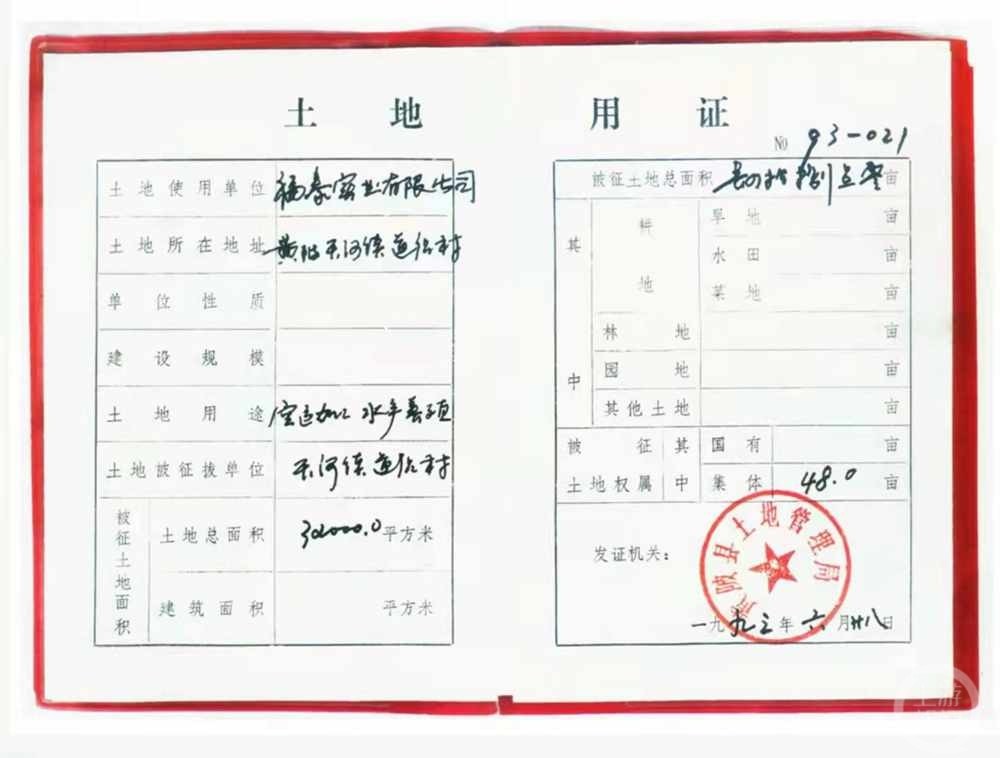 土地用证
No 93-021
土地使用单位 福泰实业有限公司
土地所在地址 黄陂天河镇道伦村
单位性质
建设规模
土地用途 加工 水产养殖
土地被征拨单位 天河镇道伦村
被征土地面积
土地总面积 平方米
建筑面积 平方米
被征土地总面积 肆拾捌点零 亩
其中
耕地
旱地 亩
水田 亩
菜地 亩
林地 亩
园地 亩
其他土地 亩
被征土地权属
其中
国有 亩
集体 48.0 亩
发证机关:
黄陂县土地管理局
一九九三年六月廿八日
上游